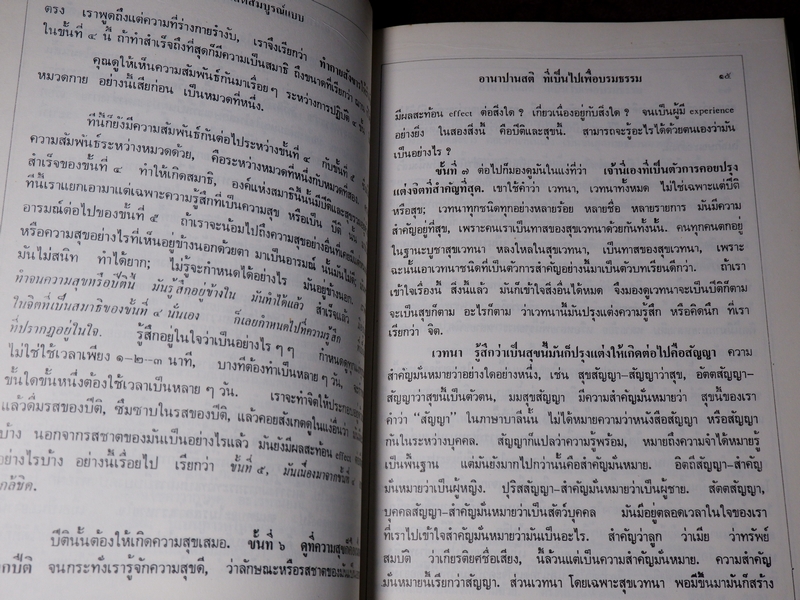 ตรง เราพูดถึงแต่ความที่ร่างกายรำงับ, เราจึงเรียกว่า
ในขั้นที่ ๔ นี้ ถ้าทำสำเร็จถึงที่สุดก็มีความเป็นสมาธิ ถึงขนาดที่เรียกว่า
คุณดูให้เห็นความสัมพันธ์กันมาเรื่อยๆ ระหว่างการปฏิบัติ ๔ ขั้น
หมวดกาย อย่างนี้เสียก่อน เป็นหมวดที่หนึ่ง.
ทีนี้ก็ยังมีความสัมพันธ์กันต่อไประหว่างขั้นที่ ๔ กับขั้นที่ ๕
ความสัมพันธ์ระหว่างหมวดด้วย, คือระหว่างหมวดที่หนึ่งกับหมวดที่สอง.
สำเร็จของขั้นที่ ๔ ทำให้เกิดสมาธิ องค์แห่งสมาธินั้นมีปีติและสุข
ทีนี้เราแยกเอามาแต่เฉพาะความรู้สึกที่เป็นความสุข หรือเป็น ปีติ นั้น
อารมณ์ต่อไปของขั้นที่ ๕ ถ้าเราจะน้อมไปถึงความสุขอย่างอื่น
หรือความสุขอย่างไรที่เห็นอยู่ข้างนอกด้วยตา มาเป็นอารมณ์ นั้นมันไม่
มันไม่สนิท ทำได้ยาก; ไม่รู้จะกำหนดได้อย่างไร มันอยู่ข้างนอก.
ทำจนความสุขหรือปีตินี้ มันรู้สึกอยู่ข้างใน มันทำได้แล้ว สำเร็จแล้ว
ในจิตที่เป็นสมาธิของขั้นที่ ๔ นั่นเอง ก็เลยกำหนดไปที่ความรู้สึก
ที่ปรากฏอยู่ในใจ. รู้สึกอยู่ในใจว่าเป็นอย่างไร ๆ ๆ กำหนด
ไม่ใช่ใช้เวลาเพียง ๑-๒-๓ นาที, บางทีต้องทำเป็นหลาย ๆ วัน,
ขั้นใดขั้นหนึ่งต้องใช้เวลาเป็นหลาย ๆ วัน. เราจะทำจิตให้ประกอบ
แล้วดื่มรสของปีติ, ซึมซาบในรสของปีติ, แล้วคอยสังเกตดูในแง่อื่นว่า
บ้าง นอกจากรสชาติของมันเป็นอย่างไรแล้ว มันยังมีผลสะท้อน effect
อย่างไรบ้าง อย่างนี้เรื่อยไป เรียกว่า ขั้นที่ ๕, มันเนื่องมาจากขั้นที่ ๔
กล้ชิด.
ปีตินั้นต้องให้เกิดความสุขเสมอ. ขั้นที่ ๖ ดูที่ความสุข
กปีติ จนกระทั่งเรารู้จักความสุขดี, ว่าลักษณะหรือรสชาติของมัน
อานาปานสติ ที่เป็นไปเพื่อบรมธรรม ๑๕
มีผลสะท้อน effect ต่อสิ่งใด ? เกี่ยวเนื่องอยู่กับสิ่งใด ? จนเป็นผู้มี experience
อย่างยิ่ง ในสองสิ่งนี้ คือปีติและสุขนี้. สามารถจะรู้อะไรได้ด้วยตนเองว่ามัน
เป็นอย่างไร ?
ขั้นที่ ๗ ต่อไปก็มองดูมันในแง่ที่ว่า เจ้านี่เองที่เป็นตัวการคอยปรุง
แต่งจิตที่สำคัญที่สุด. เขาใช้คำว่า เวทนา, เวทนาทั้งหมด ไม่ใช่เฉพาะแต่ปีติ
หรือสุข; เวทนาทุกชนิดทุกอย่างหลายร้อย หลายชื่อ หลายรายการ มันมีความ
สำคัญอยู่ที่สุข, เพราะคนเราเป็นทาสของสุขเวทนาด้วยกันทั้งนั้น. คนทุกคนตกอยู่
ในฐานะบูชาสุขเวทนา หลงใหลในสุขเวทนา, เป็นทาสของสุขเวทนา, เพราะ
ฉะนั้นเอาเวทนาชนิดที่เป็นตัวการสำคัญอย่างนี้มาเป็นตัวบทเรียนดีกว่า. ถ้าเรา
เข้าใจเรื่องนี้ สิ่งนี้แล้ว มันก็เข้าใจสิ่งอื่นได้หมด จึงมองดูเวทนาจะเป็นปีติก็ตาม
จะเป็นสุขก็ตาม อะไรก็ตาม ว่าเวทนานี้มันปรุงแต่งความรู้สึก หรือคิดนึก ที่เรา
เรียกว่า จิต.
เวทนา รู้สึกว่าเป็นสุขนี้มันก็ปรุงแต่งให้เกิดต่อไปคือสัญญา ความ
สำคัญมั่นหมายว่าอย่างใดอย่างหนึ่ง, เช่น สุขสัญญา–สัญญาว่าสุข, อัตตสัญญา–
สัญญาว่าสุขนี้เป็นตัวตน, มมสุขสัญญา มีความสำคัญมั่นหมายว่า สุขนี้ของเรา
คำว่า “สัญญา” ในภาษาบาลีนั้น ไม่ได้หมายความว่าหนังสือสัญญา หรือสัญญา
กันในระหว่างบุคคล. สัญญาก็แปลว่าความรู้พร้อม, หมายถึงความจำได้หมายรู้
เป็นพื้นฐาน แต่มันยังมากไปกว่านั้นคือสำคัญมั่นหมาย. อิตถีสัญญา–สำคัญ
มั่นหมายว่าเป็นผู้หญิง. ปุริสสัญญา–สำคัญมั่นหมายว่าเป็นผู้ชาย. สัตตสัญญา,
บุคคลสัญญา–สำคัญมั่นหมายว่าเป็นสัตว์บุคคล มันมีอยู่ตลอดเวลาในใจของเรา
ที่เราไปเข้าใจสำคัญมั่นหมายว่ามันเป็นอะไร. สำคัญว่าลูก ว่าเมีย ว่าทรัพย์
สมบัติ ว่าเกียรติยศชื่อเสียง, นี้ล้วนแต่เป็นความสำคัญมั่นหมาย. ความสำคัญ
มั่นหมายนี้เรียกว่าสัญญา. ส่วนเวทนา โดยเฉพาะสุขเวทนา พอมีขึ้นมามันก็สร้าง